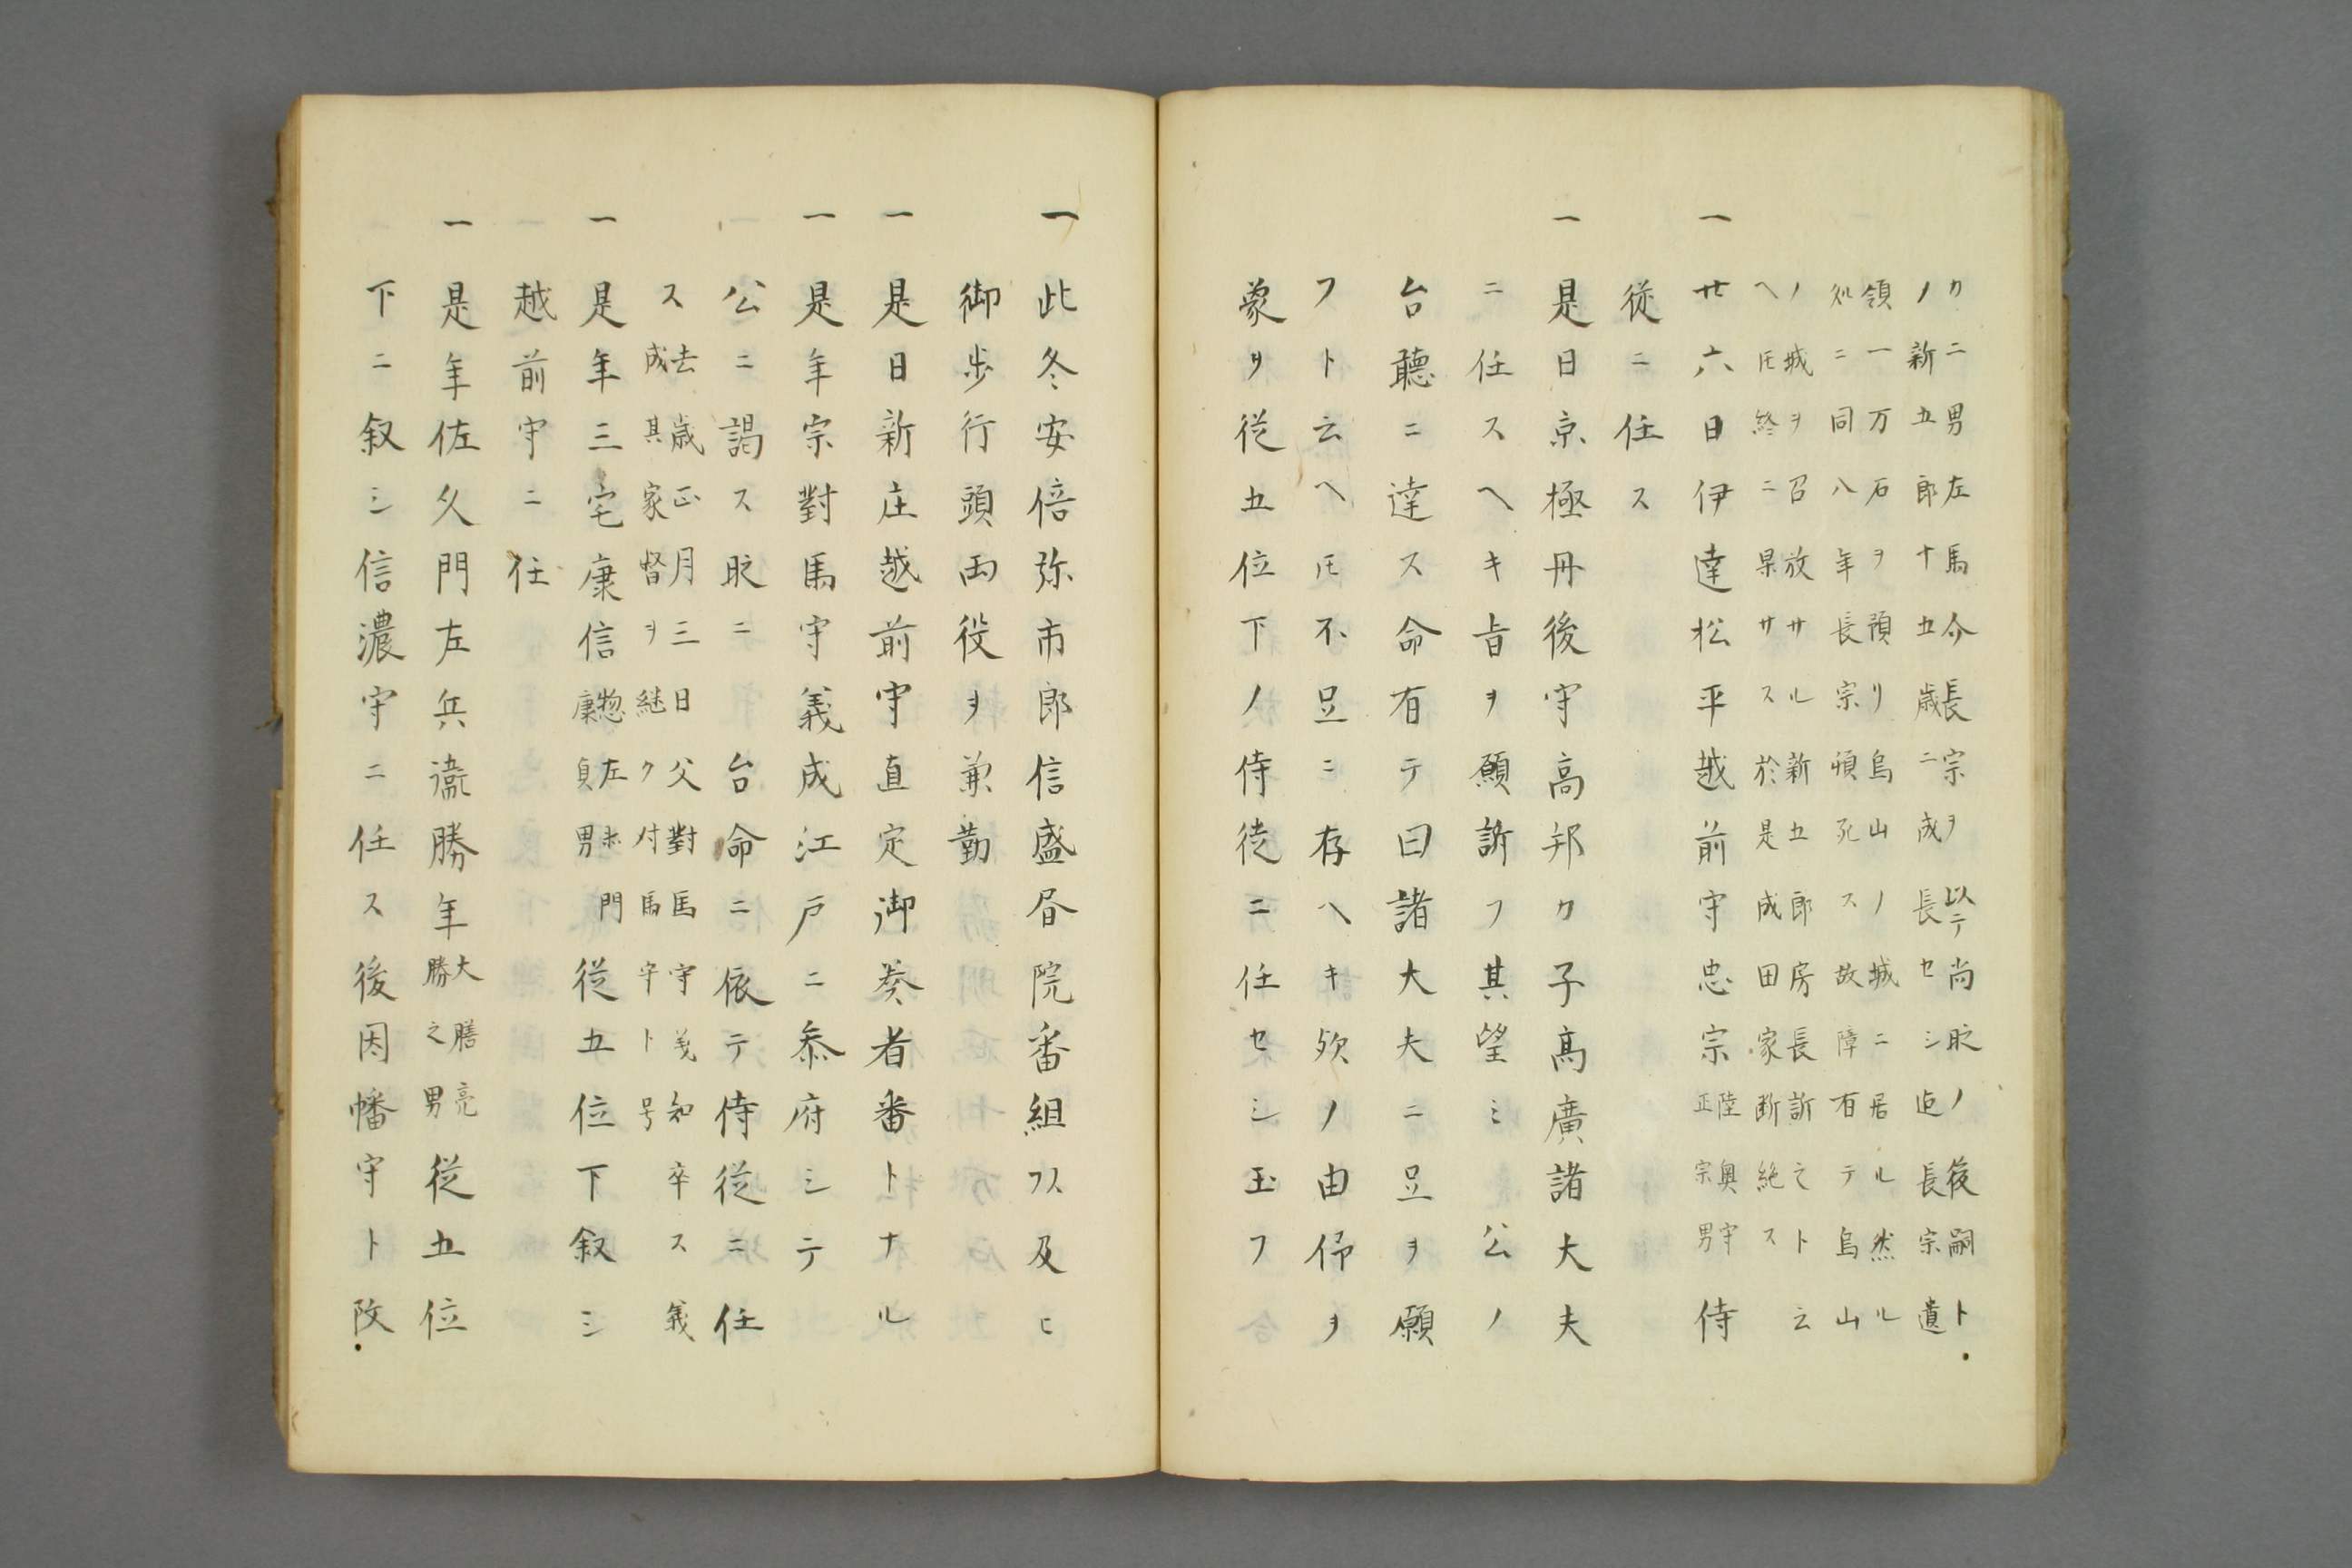 カ二男左馬介長宗ヲ以テ尚昵ノ後嗣ト
ノ新五郎十五歳ニ成長セシ迠長宗遺
領一万石ヲ預リ烏山ノ城ニ居ル然ル
処ニ同八年長宗頓死ス故障有テ烏山
ノ城ヲ召放サル新五郎房長訴之ト云
ヘ𪜈終ニ果サス於是成田家断絶ス
一 廿六日伊達松平越前守忠宗陸奥守
正宗男侍
従ニ任ス
一 是日京極丹後守高邦カ子高廣諸大夫
ニ任スヘキ旨ヲ願訴フ其望ミ 公ノ
台聽ニ達ス命有テ曰諸大夫ニ足ヲ願
フト云ヘ𪜈不足ニ存ヘキ歟ノ由仰ヲ
蒙リ従五位下ノ侍従ニ任セシ玉フ
一 此冬安倍弥市郎信盛昼院番組頭及ヒ
御歩行頭両役ヲ兼勤
一 是日新庄越前守直定御奏者番トナル
一 是年宗對馬守義成江戸ニ参府シテ
公ニ謁ス昵ニ 台命ニ依テ侍従ニ任
ス去歳正月三日父對馬守義知卒ス義
成其家督ヲ継ク付馬守ト号
一 是年三宅康信惣左衛門
康貞男従五位下叙シ
越前守ニ任
一 是年佐久門左兵衞勝年大膳亮
勝之男従五位
下ニ叙シ信濃守ニ任ス後因幡守ト改